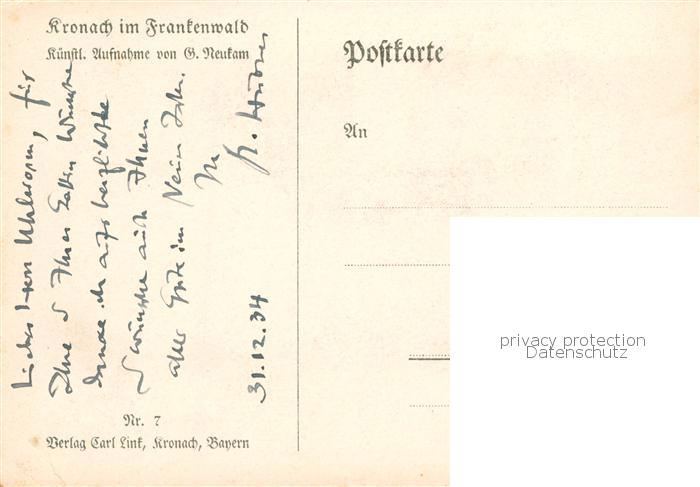 Kronach im Frankenwald
Künstl. Aufnahme von G. Neukam
Lieber Herr für
Ihre & Ihrer Gattin Wünsche
danke ich aufs herzlichste
& wünsche auch Ihnen
alles Gute im Neuen Jahr.
Ihr
31.12.34
Nr. 7
Verlag Carl Link, Kronach, Bayern
Postkarte
An
privacy protection
Datenschutz